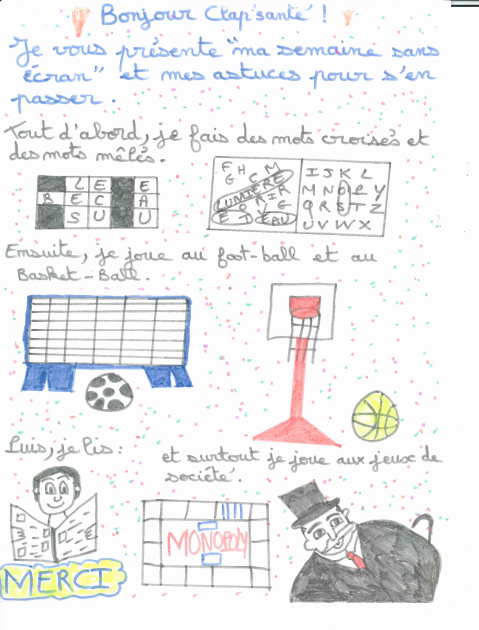 Bonjour Clap'santé !
Je vous présente "ma semaine sans
écran" et mes astuces pour s'en
passer.
Tout d'abord, je fais des mots croisés et
des mots mêlés.
L E E
B E C A
S U U
F H C M
G
LUMIERE
I J K L
M N O P Y
Q R S T Z
U V W X
Ensuite, je joue au foot-ball et au
Basket-Ball.
Puis, je lis :
et surtout je joue aux jeux de
société.
MONOPOLY
MERCI